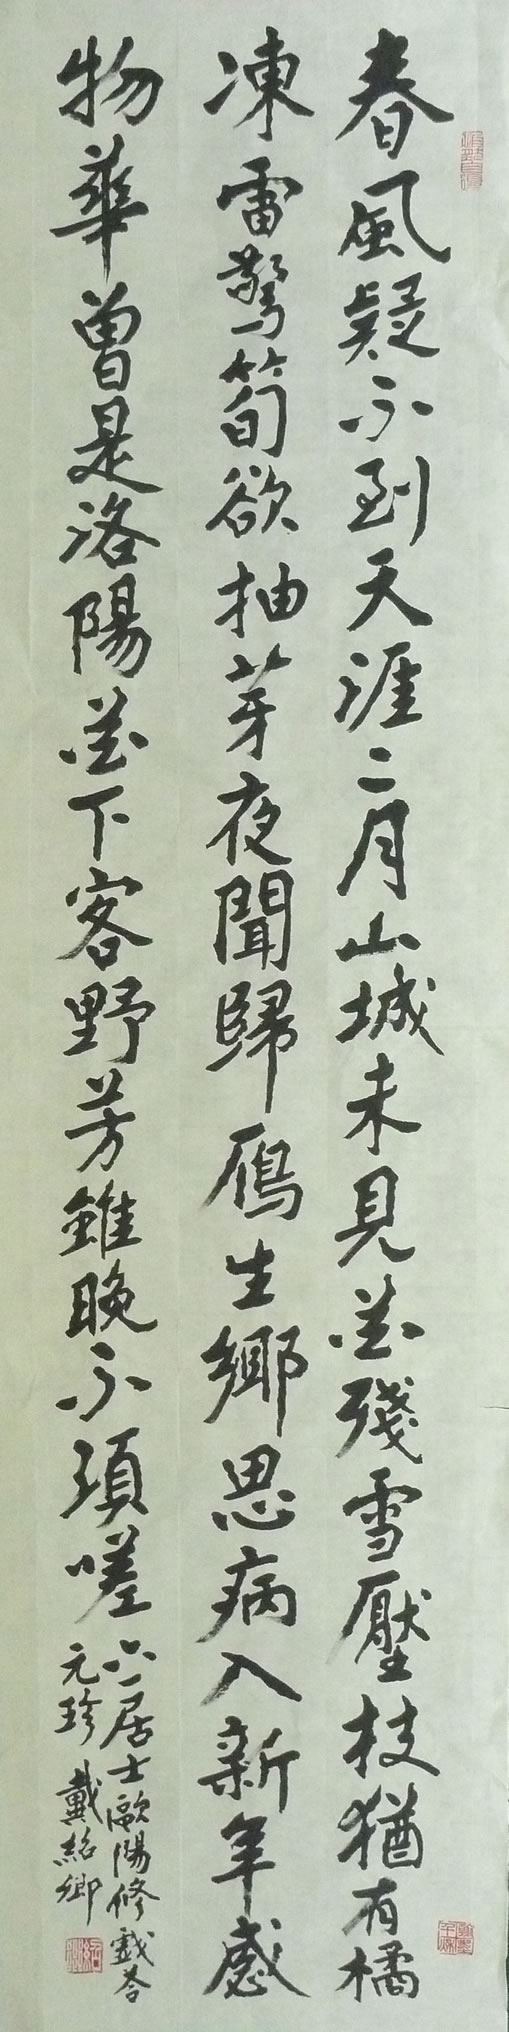 春風疑不到天涯二月山城未見花殘雪壓枝猶有橘
凍雷驚筍欲抽芽夜聞歸雁生鄉思病入新年感
物華曾是洛陽花下客野芳雖晚不須嗟
六一居士歐陽修戲答
元珍 戴紹卿